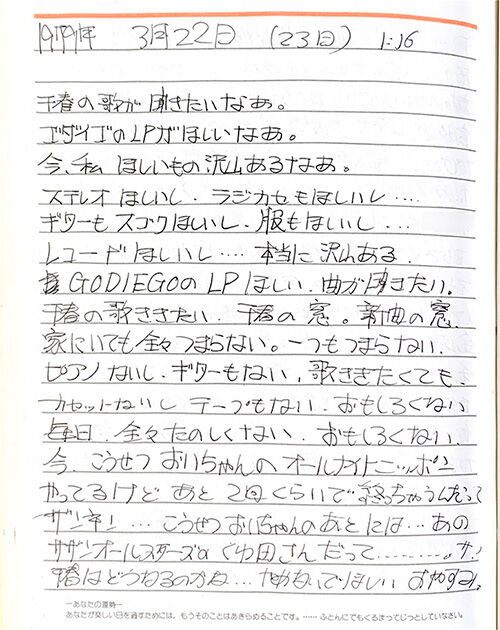 1979年 3月22日 (23日) 1:16
千春の歌が聞きたいなあ。
ゴダイゴのLPがほしいなあ。
今、私 ほしいもの沢山あるなあ。
ステレオ ほしいし、ラジカセもほしいし....
ギターも スゴクほしいし、服もほしいし....
レコードほしいし.... 本当に沢山ある.
GODIEGOの LP ほしい. 曲が聞きたい.
千春の歌ききたい. 千春の窓。新曲の窓.
家にいても全々つまらない。一つもつまらない.
ピアノないし. ギターもない, 歌ききたくても.
カセットないし テープもない. おもしろくない
毎日. 全々たのしくない. おもしろくない.
今. こうせつ おいちゃんの オールナイトニッポン
やってるけど あと 2回くらいで 終っちゃうんだって
ザンネン... こうせつ おいちゃんのあとには... あの
サザンオールスターズの くわ田さんだって..........。サ!
千春はどうなるのかな... やめないでほしい おやすみ.
―あなたの運勢―
あなたが楽しい日を過すためには、もうそのことはあきらめることです。…… ふとんにでもくるまってじっとしていなさい。